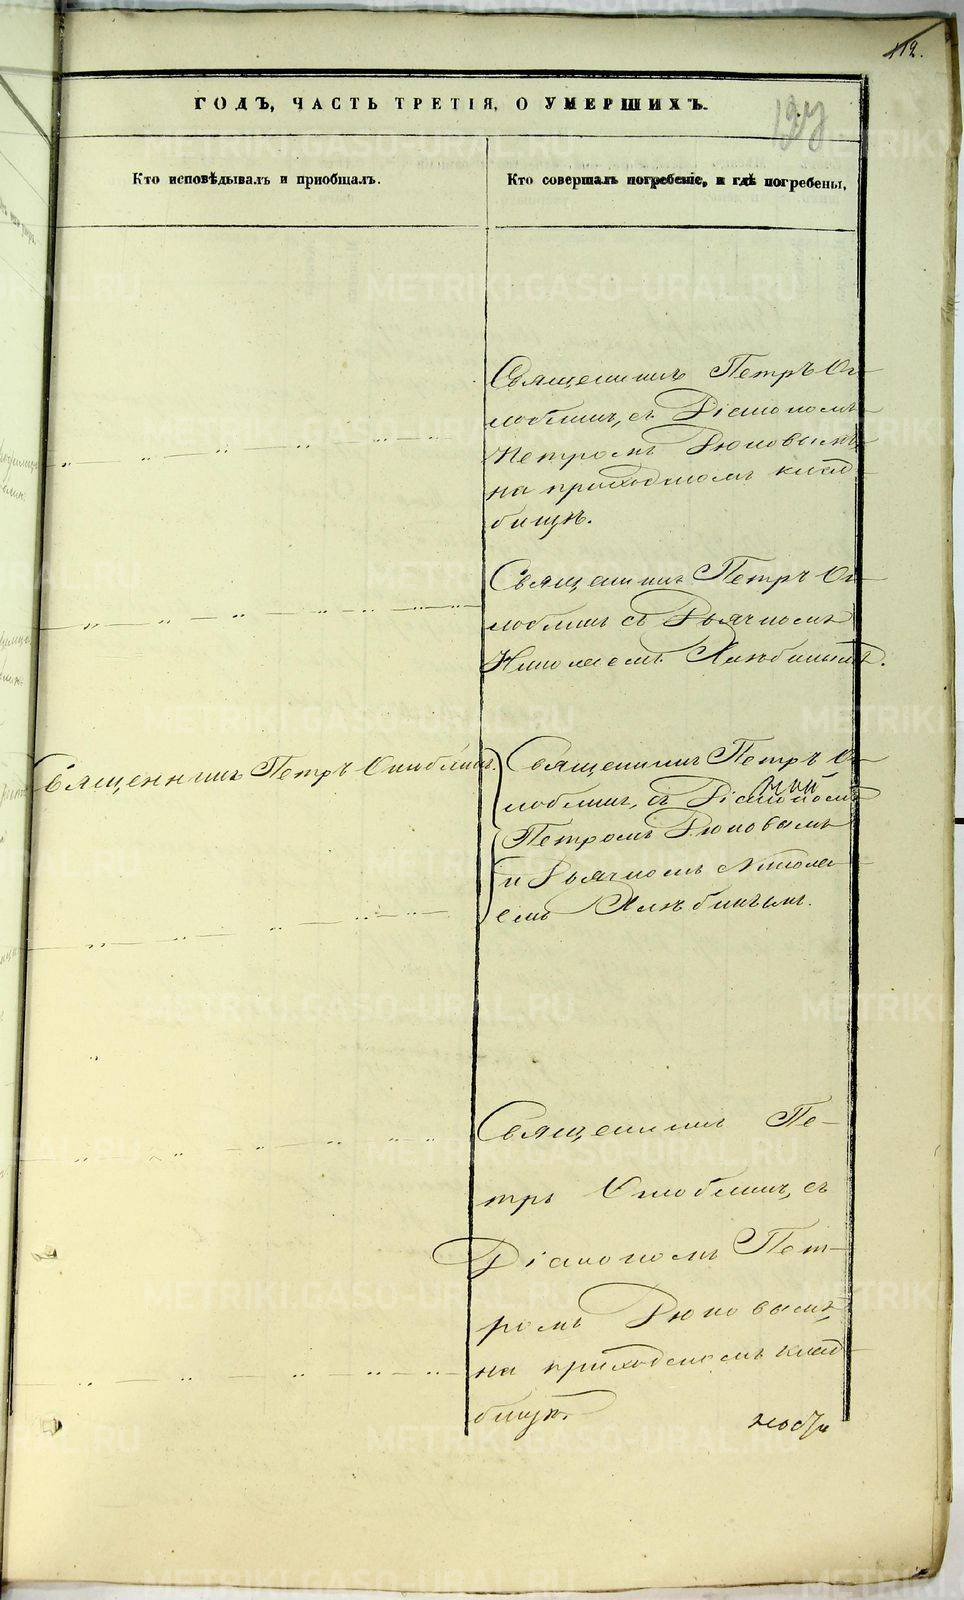 112.
137
ГОДЪ, ЧАСТЬ ТРЕТІЯ, О УМЕРШИХЪ.
Кто исповѣдывалъ и приобщалъ.
Кто совершалъ погребеніе, и гдѣ погребены,
Священникъ Петръ Ог-
лоблинъ, съ Діакономъ
Петромъ
на приходскомъ клад-
бищѣ.
Священникъ Петръ Ог-
лоблинъ съ Дьячкомъ
Николаемъ
Священникъ Петръ Оглоблинъ.
Священникъ Петръ Ог-
лоблинъ, съ Діакономъ
Петромъ
и Дьячкомъ Никола-
емъ
Священникъ Пе-
тръ Оглоблинъ, съ
Діакономъ Пет-
ромъ
на приходскомъ клад-
бищѣ.
METRIKI.GASO-URAL.RU